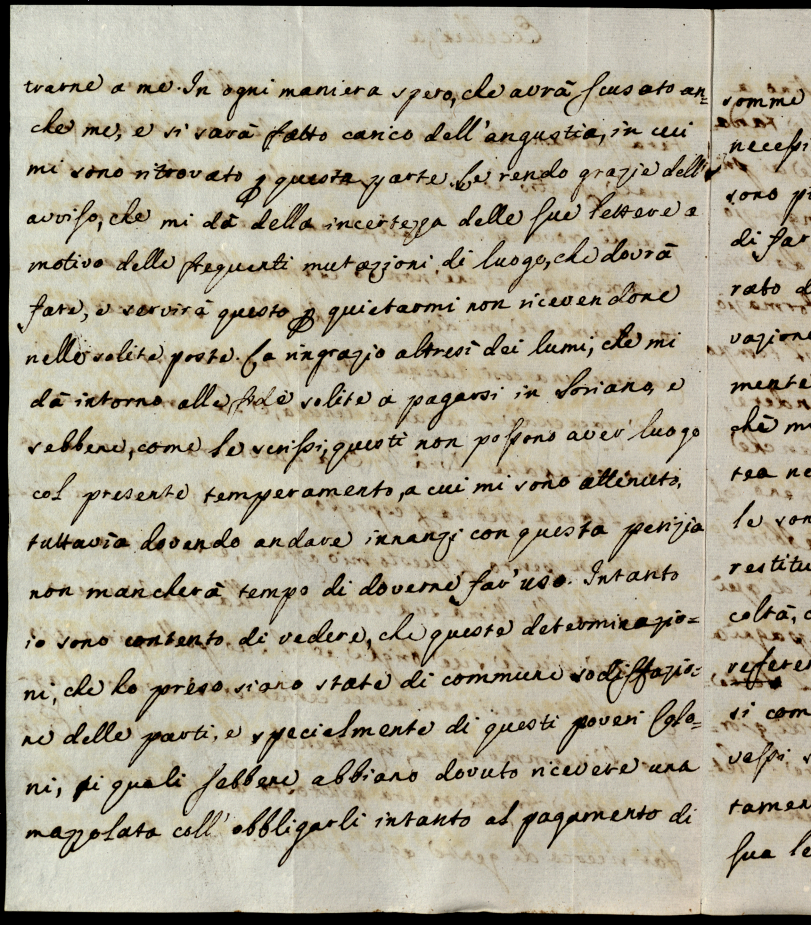 trarne a me. In ogni maniera spero, che avrà scusato an=
che me, e si sarà fatto carico dell'angustia, in cui
mi sono ritrovato p questa parte. Le rendo grazie dell'
avviso, che mi dà della incertezza delle sue lettere a
motivo delle frequenti mutazioni di luogo, che dovrà
fare, e servirà questo p quietarmi non ricevendone
nelle solite poste. La ringrazio altresì dei lumi, che mi
dà intorno alle solite a pagarsi in Soriano, e
sebbene, come le scrissi, questi non possono aver luogo
col presente temperamento, a cui mi sono attenuto,
tuttavia dovendo andare innanzi con questa perizia
non mancherà tempo di doverne far'uso. Intanto
io sono contento di vedere, che queste determinazio=
ni, che ho preso siano state di commune sodisfazio=
ne delle parti, e specialmente di questi poveri Colo=
ni, i quali sebbene abbiano dovuto ricevere una
mazzolata coll'obbligarli intanto al pagamento di
somme
necessi
sono pr
di far
rato d
vazione
mente
chè m
tea ne
le son
restitu
coltà, c
refere
si com
vessi s
tamen
sua le